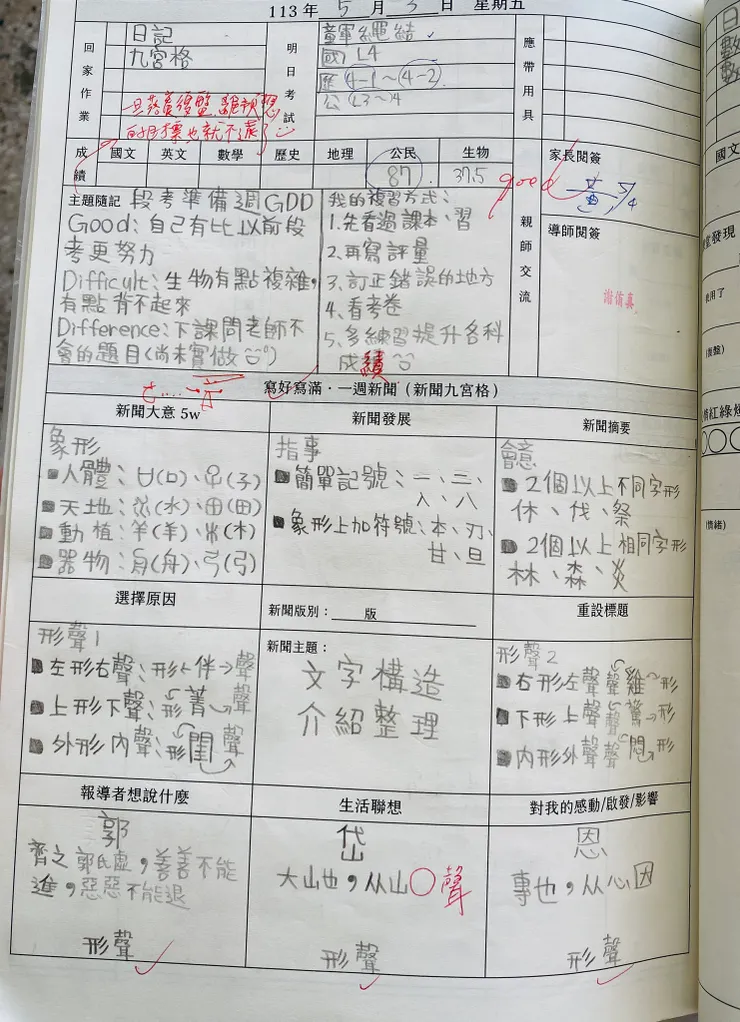 113年 5 月 3 日 星期五
回家作業
日記
九宮格
明日考試
國 L4
歷 (4-1~4-2)
公 L3~4
應帶用具
的目標也就不遠
成績
國文
英文
數學
歷史
地理
公民
生物
87
37.5
good
家長閱簽
5/4
親師交流
導師閱簽
主題隨記 段考準備週GDD
Good:自己有比以前段
考更努力
Difficult:生物有點複雜,
有點背不起來
Difference:下課問老師不
會的題目(尚未實做
我的複習方式:
1.先看過課本、習
2.再寫評量
3.訂正錯誤的地方
4.看考卷
5.多練習提升各科
成績
寫好寫滿・一週新聞(新聞九宮格)
新聞大意 5w
新聞發展
新聞摘要
象形
人體:(口)、(子)
天地:(水)、(田)
動植:(羊)、(木)
器物:(舟)、(弓)
指事
簡單記號:一、三、
入、八
象形上加符號:本、刃、
甘、旦
會意
2個以上不同字形
休、伐、祭
2個以上相同字形
林、森、炎
選擇原因
新聞版別: 版
重設標題
形聲1
左形右聲:形←伴→聲
上形下聲:形菁→聲
外形內聲:形閨聲
新聞主題:
文字構造
介紹整理
形聲2
右形左聲 聲雞形
下形上聲 聲驚→形
內形外聲 聲悶→形
報導者想說什麼
生活聯想
對我的感動/啟發/影響
郭
齊之郭氏虛,善善不能
進,惡惡不能退
形聲
岱
大山也,从山○聲
形聲
恩
專也,从心因
形聲